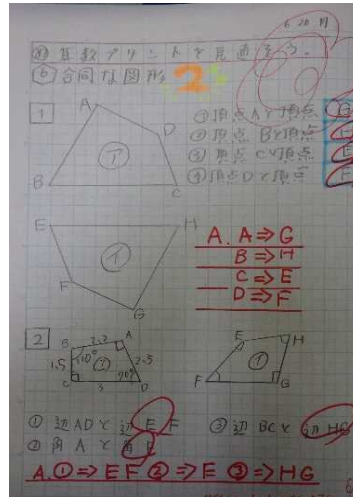 6 20 月
算数プリントを見直そう。
⑥ 合同な図形 2
1
A
D
ア
B
C
① 頂点Aと頂点 G
② 頂点Bと頂点 H
③ 頂点Cと頂点 E
④ 頂点Dと頂点 F
E
H
イ
F
G
A. A⇒G
B⇒H
C⇒E
D⇒F
2
B 2.2 A
1.5 110° ア 2.5
C 3 70° D
E H
イ
F G
① 辺ADと辺EF
③ 辺BCと辺HG
② 角Aと角E
A. ①⇒EF ②⇒E ③⇒HG